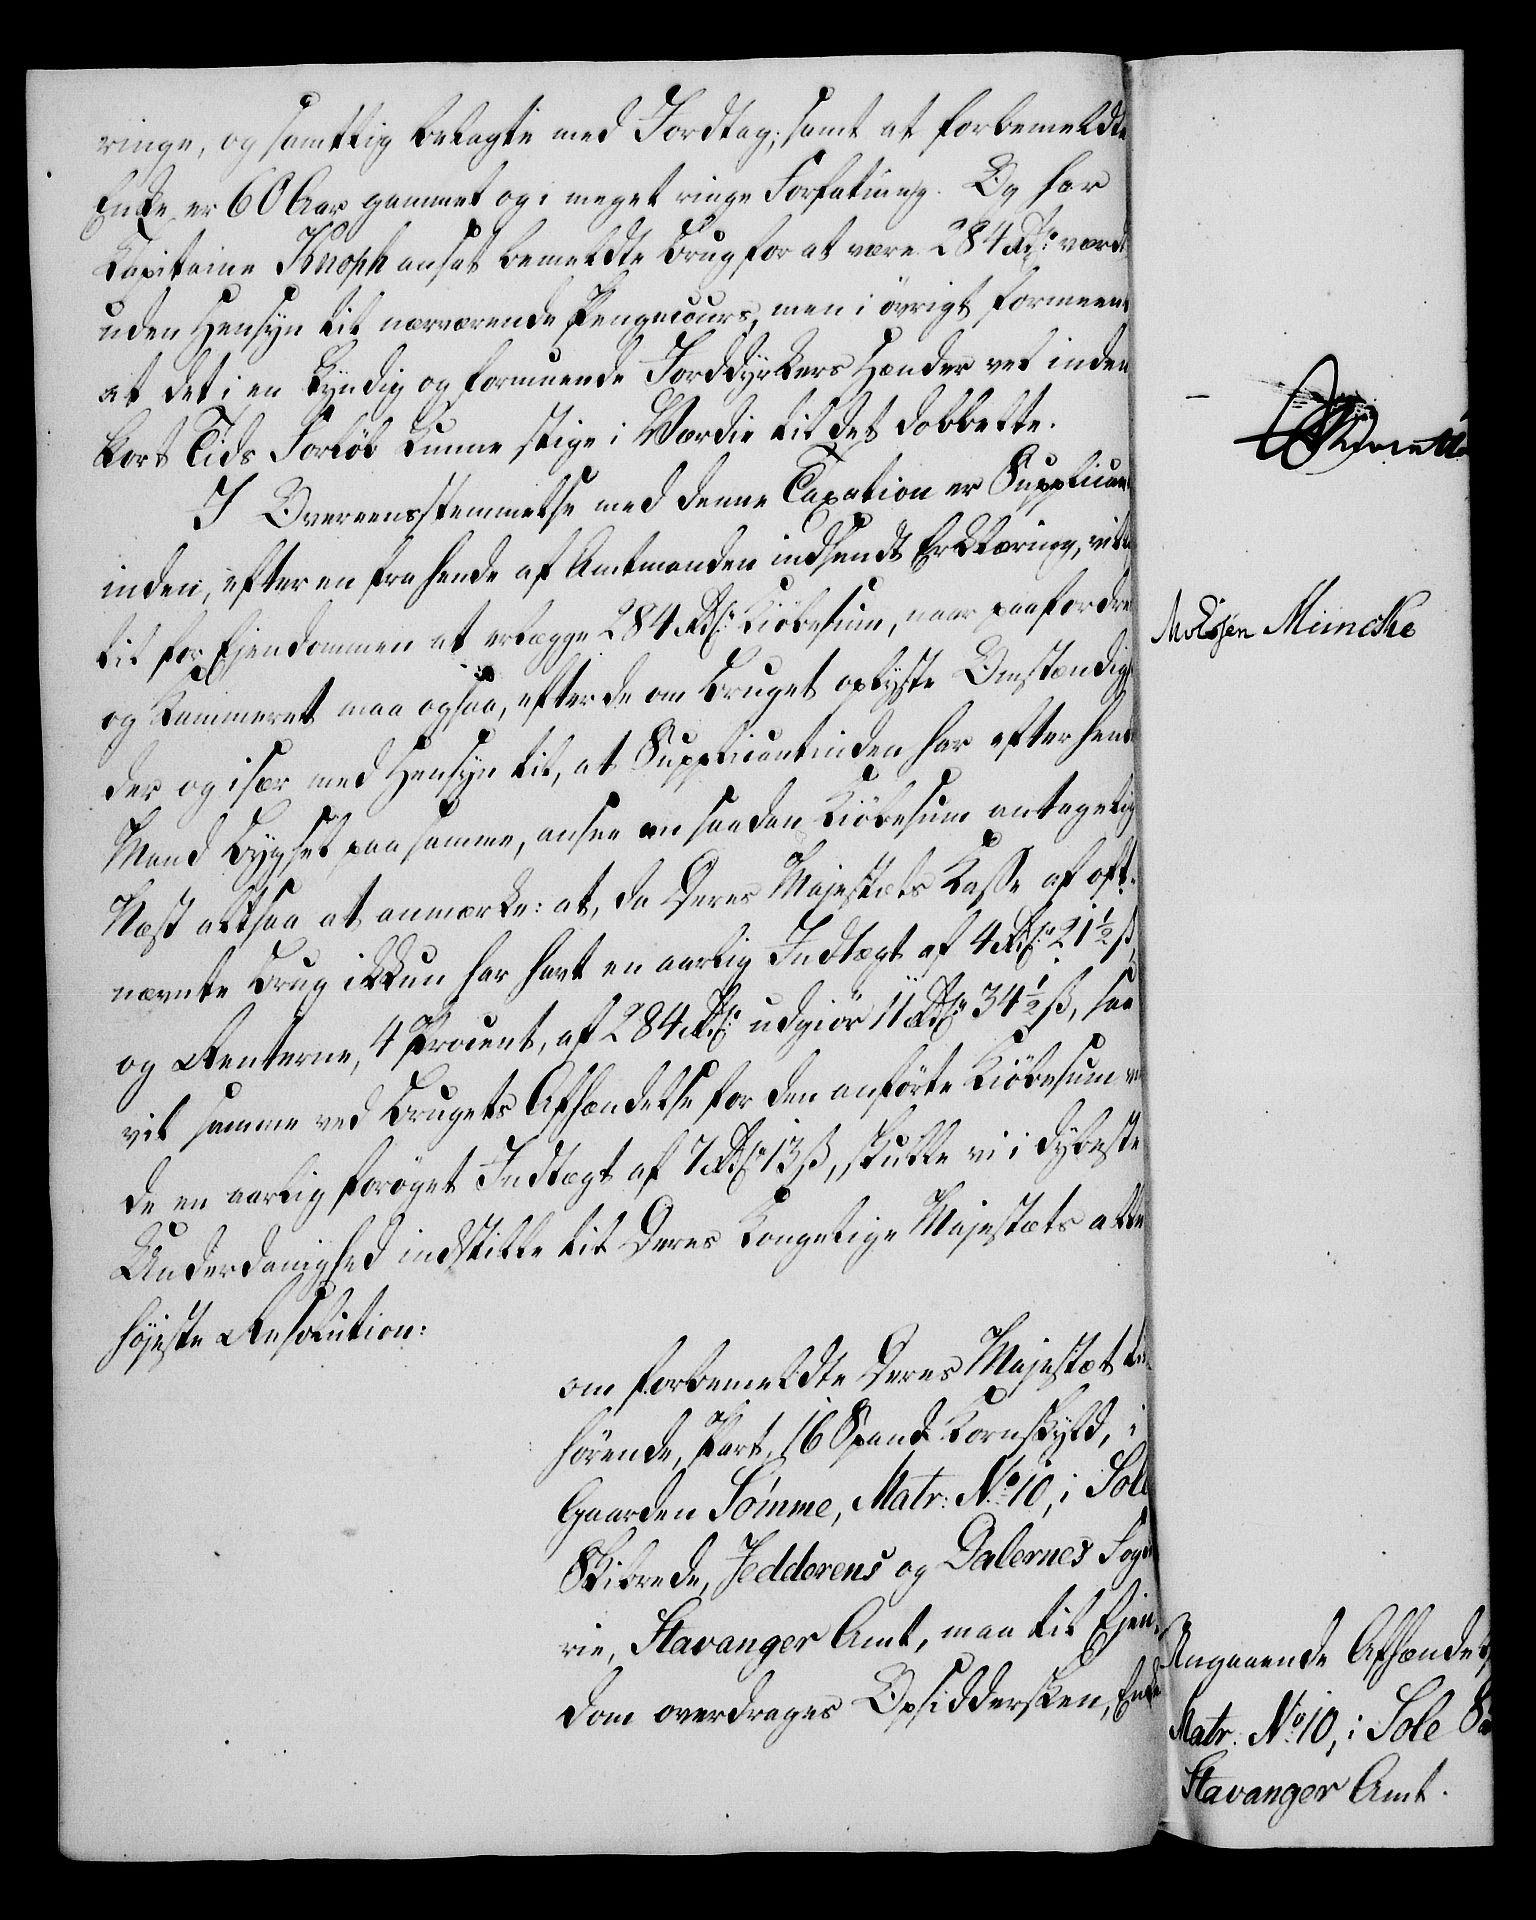 ringe, og samtlig belagte med Jordtag; samt at forbemeldte
Enke er 60 Aar gammel og i meget ringe Forfatning. Og har
Capitaine Knoph anset bemeldte Brug for at være 284 Rd: værd
uden Hensyn til nærværende Pengecours, men i övrigt formeent
at det i en kyndig og formuende Jorddyrkers Hænder vel inden
kort Tids Forløb kunne stige i Værdie til det dobbelte.
I Overeensstemmelse med denne Taxation er Supplican
inden, efter en fra hende af Amtmanden indsendt Erklæring, vil
til for Ejendommen at erlægge 284 Rd: Kiöbesum, naar paafordre
og Kammeret maa ogsaa, efter de om Bruget oplyste Omstændig
der og især med Hensyn til, at Supplicantinden har efter hend
Mand Bygsel paa samme, ansee en saadan Kiöbesum antagelig
Næst altsaa at anmærke: at, da Deres Majestæts Kasse af oft-
nævnte Brug ikkun har havt en aarlig Indtægt af 4 Rd: 21½ ß,
og Renterne, 4 Procent, af 284 Rd: udgiör 11 Rd: 34½ ß, saa
vil samme ved Brugets Afhændelse for den anförte Kiöbesum
de en aarlig forøget Indtægt af 7 Rd: 13 ß, skulle vi i dybeste
Underdanighed indstille til Deres Kongelige Majestæts aller
höjeste Resolution:
om forbemeldte Deres Majestæt til
hörende, Part, 16 Spand Kornskyld, i
Gaarden Sömme, Matr: No 10, i Sole
Skibrede, Jedderens og Dalernes Foge
rie, Stavanger Amt, maa til Ejen-
dom overdrages Opsiddersken, Enke
Mimcke
Angaaende Afhændel
Matr. No 10, i Sole
Stavanger Amt.